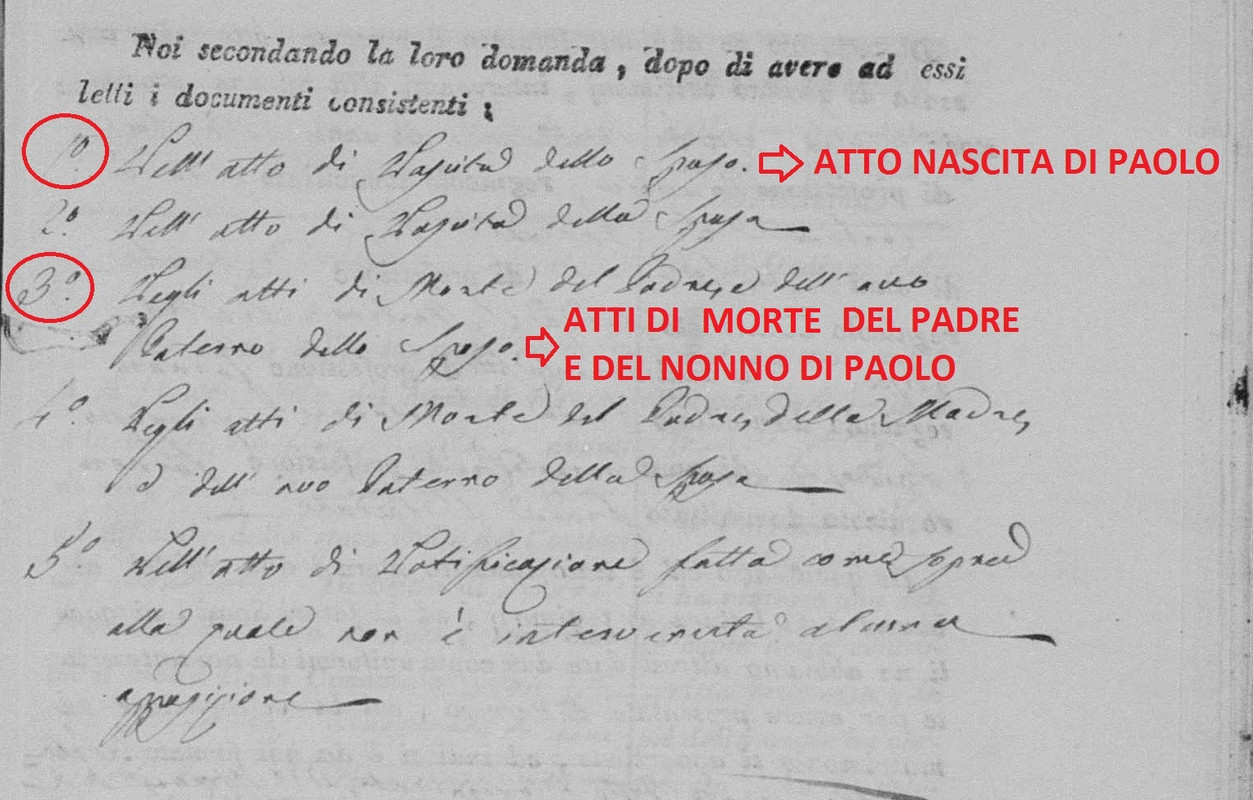 Noi secondando la loro domanda, dopo di avere ad essi
letti i documenti consistenti;
1º. Nell' atto di Nascita dello Sposo. ATTO NASCITA DI PAOLO
2º. Nell' atto di Nascita della Sposa
3º. Negli atti di Morte del Padre, e dell' avo
Paterno dello Sposo. ATTI DI MORTE DEL PADRE
E DEL NONNO DI PAOLO
4º. Negli atti di Morte del Padre, della Madre,
e dell' avo Paterno della Sposa
5º. Nell' atto di Notificazione fatta come sopra
alla quale non è intervenuta alcuna
opposizione